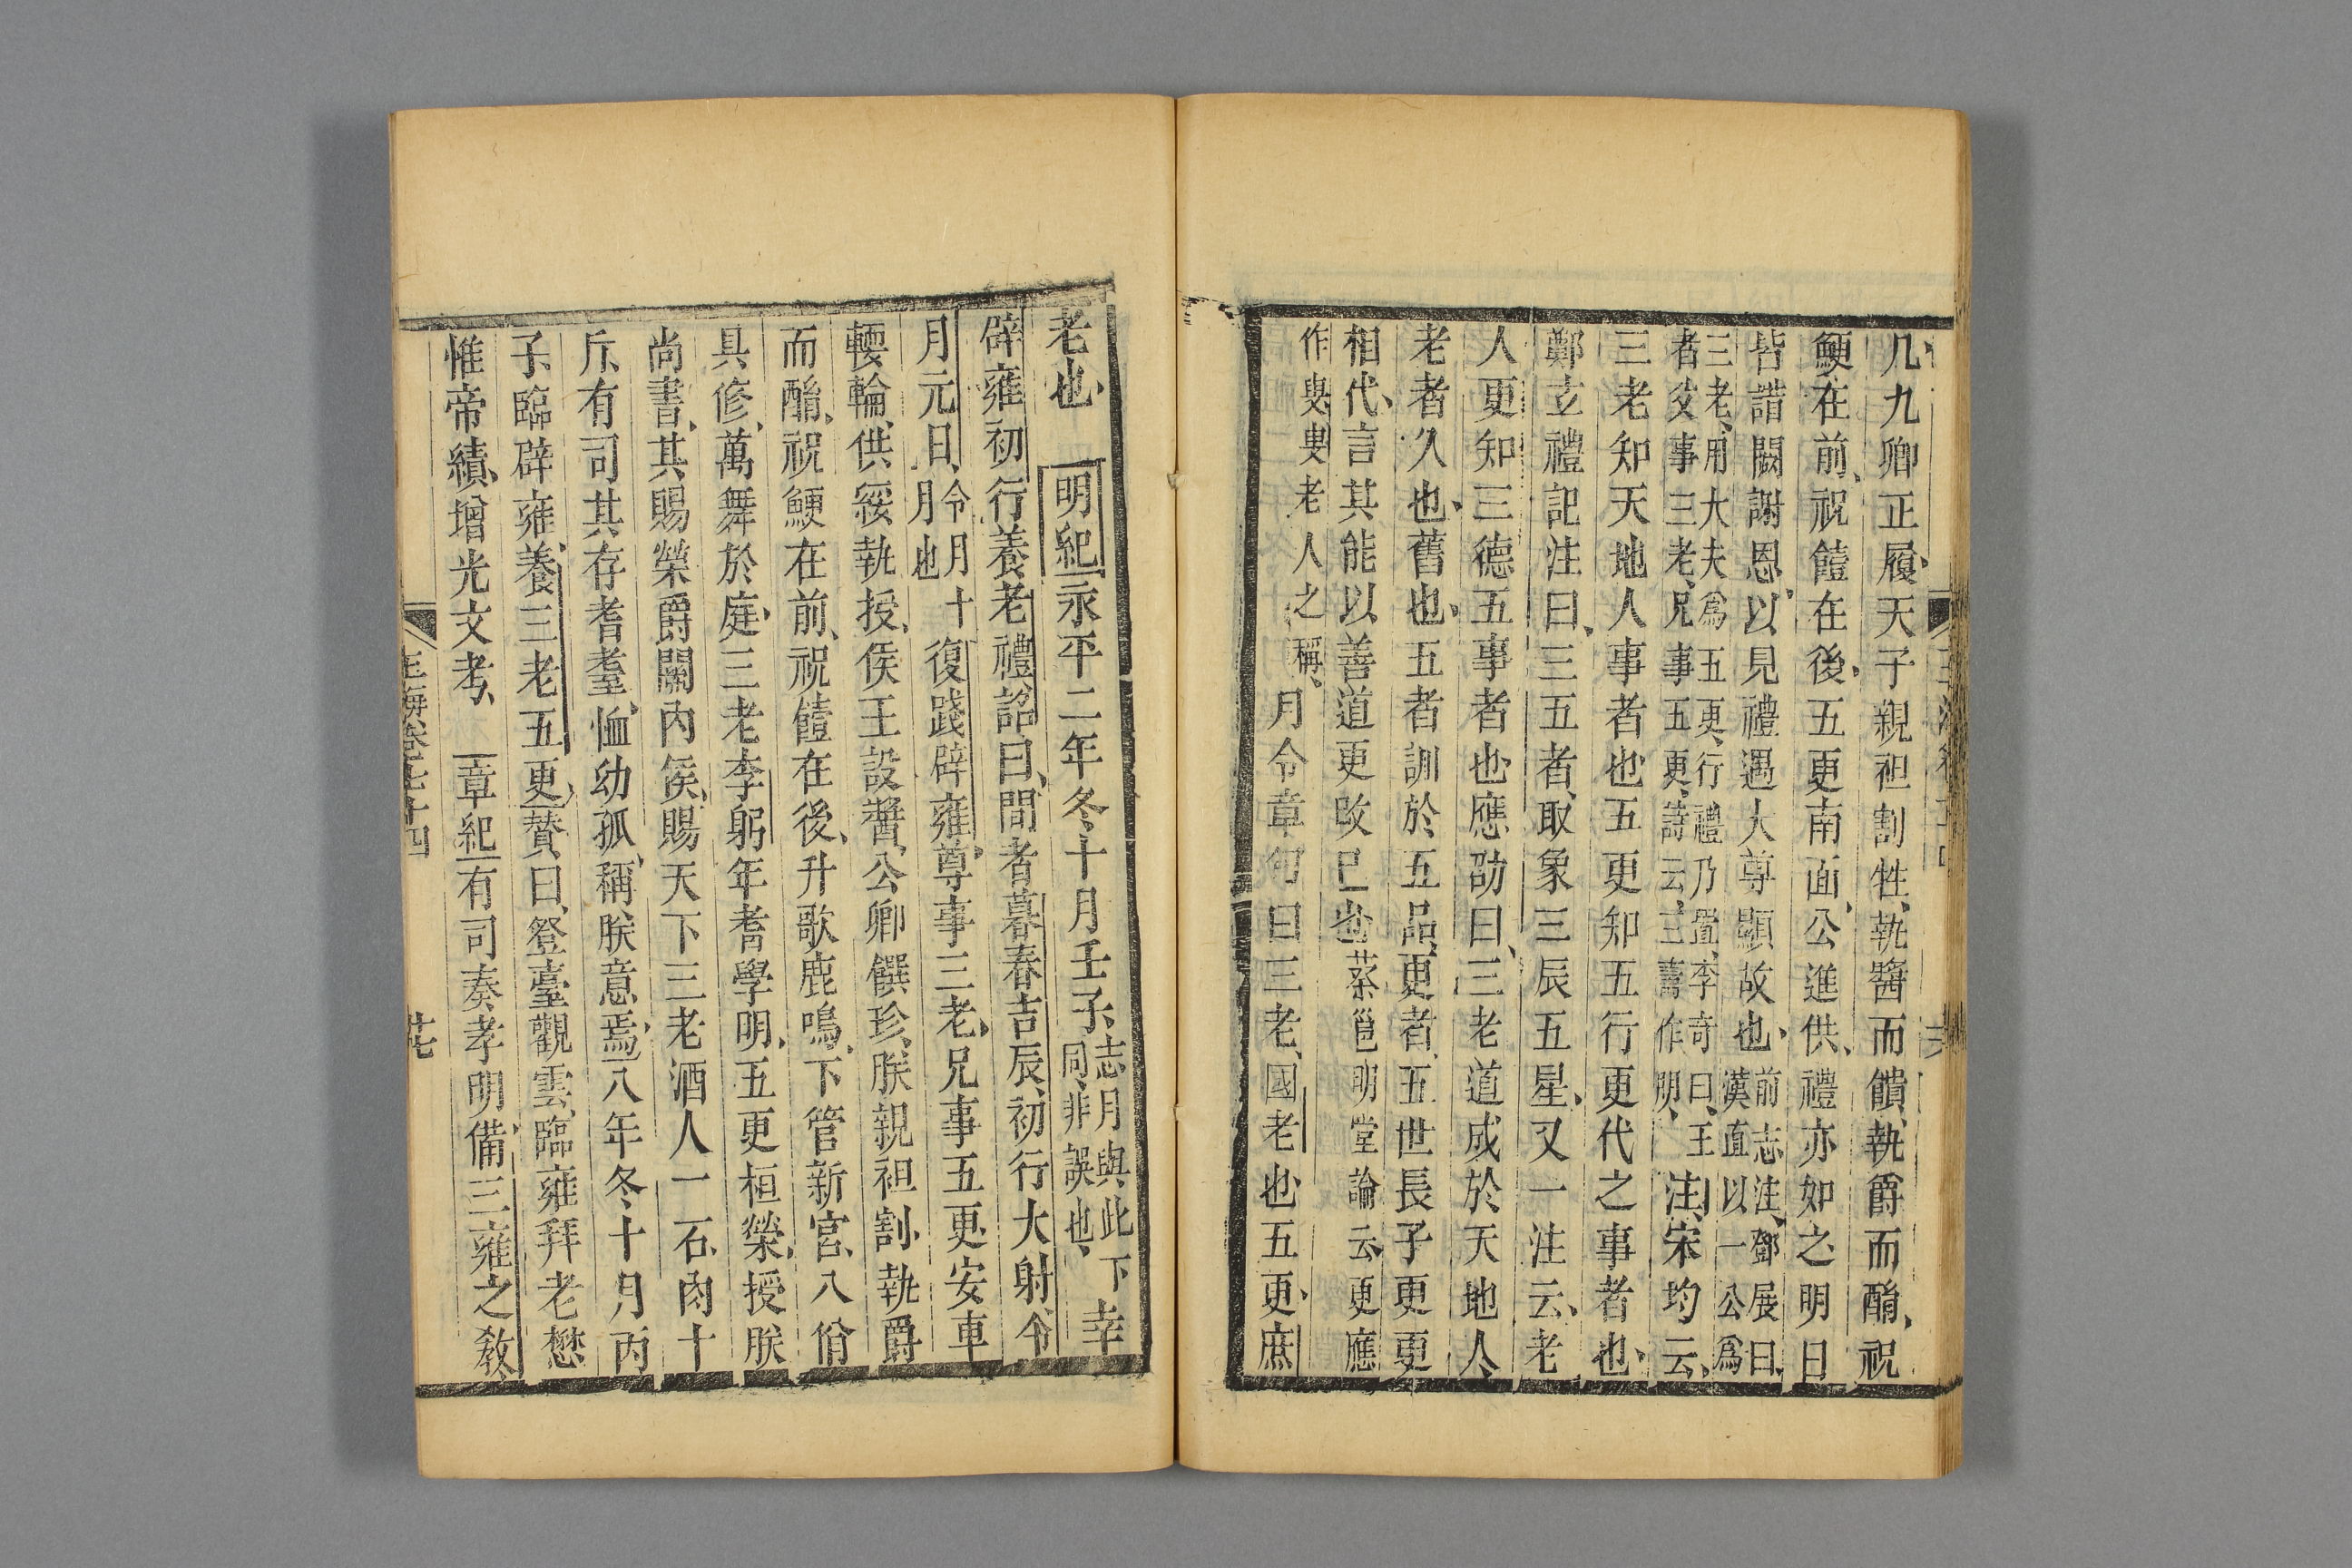 几九卿正履天子親袒割牲執醬而饋執爵而酳祝
鯁在前祝饐在後五更南面公進供禮亦如之明日
皆詣闕謝恩以見禮遇大尊顯故也前志注鄧展曰漢直以一公爲
三老用大夫爲五更行禮乃置李奇曰王
者父事三老兄事五更詩云三壽作朋注宋均云
三老知天地人事者也五更知五行更代之事者也
鄭玄禮記注曰三五者取象三辰五星又一注云老
人更知三德五事者也應劭曰三老道成於天地人
老者久也舊也五者訓於五品更者五世長子更更
相代言其能以善道更改已也蔡邕明堂論云更應
作叟叟老人之稱月令章句曰三老國老也五更庶
老也 明紀永平二年冬十月壬子志月與此同非誤也下幸
辟雍初行養老禮詔曰間者暮春吉辰初行大射令
月元日令月十月也復踐辟雍尊事三老兄事五更安車
輭輪供綏執授侯王設醬公卿饌珍朕親袒割執爵
而酳祝鯁在前祝饐在後升歌鹿鳴下管新宮八佾
具修萬舞於庭三老李躬年耆學明五更桓榮授朕
尚書其賜榮爵關內侯賜天下三老酒人一石肉十
斤有司其存耆耋恤幼孤稱朕意焉八年冬十月丙
子臨辟雍養三老五更贊曰登臺觀雲臨雍拜老懋
惟帝績增光文考 章紀有司奏孝明備三雍之教
玉海卷七十四 廿七